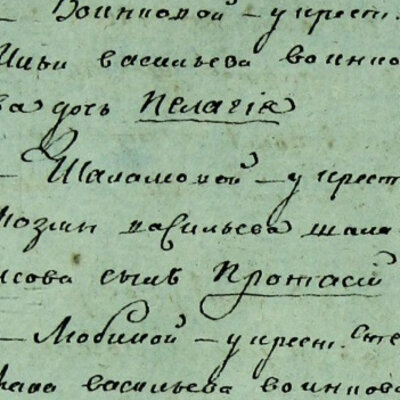 – Воинковой – у крест.
Ильи васильева воинко
ва дочь Пелагія
– Шаламовой – у крест
козмы васильева шала
мова сынъ Протасій
– Любимой – у крест. Сте
васильева воинкова